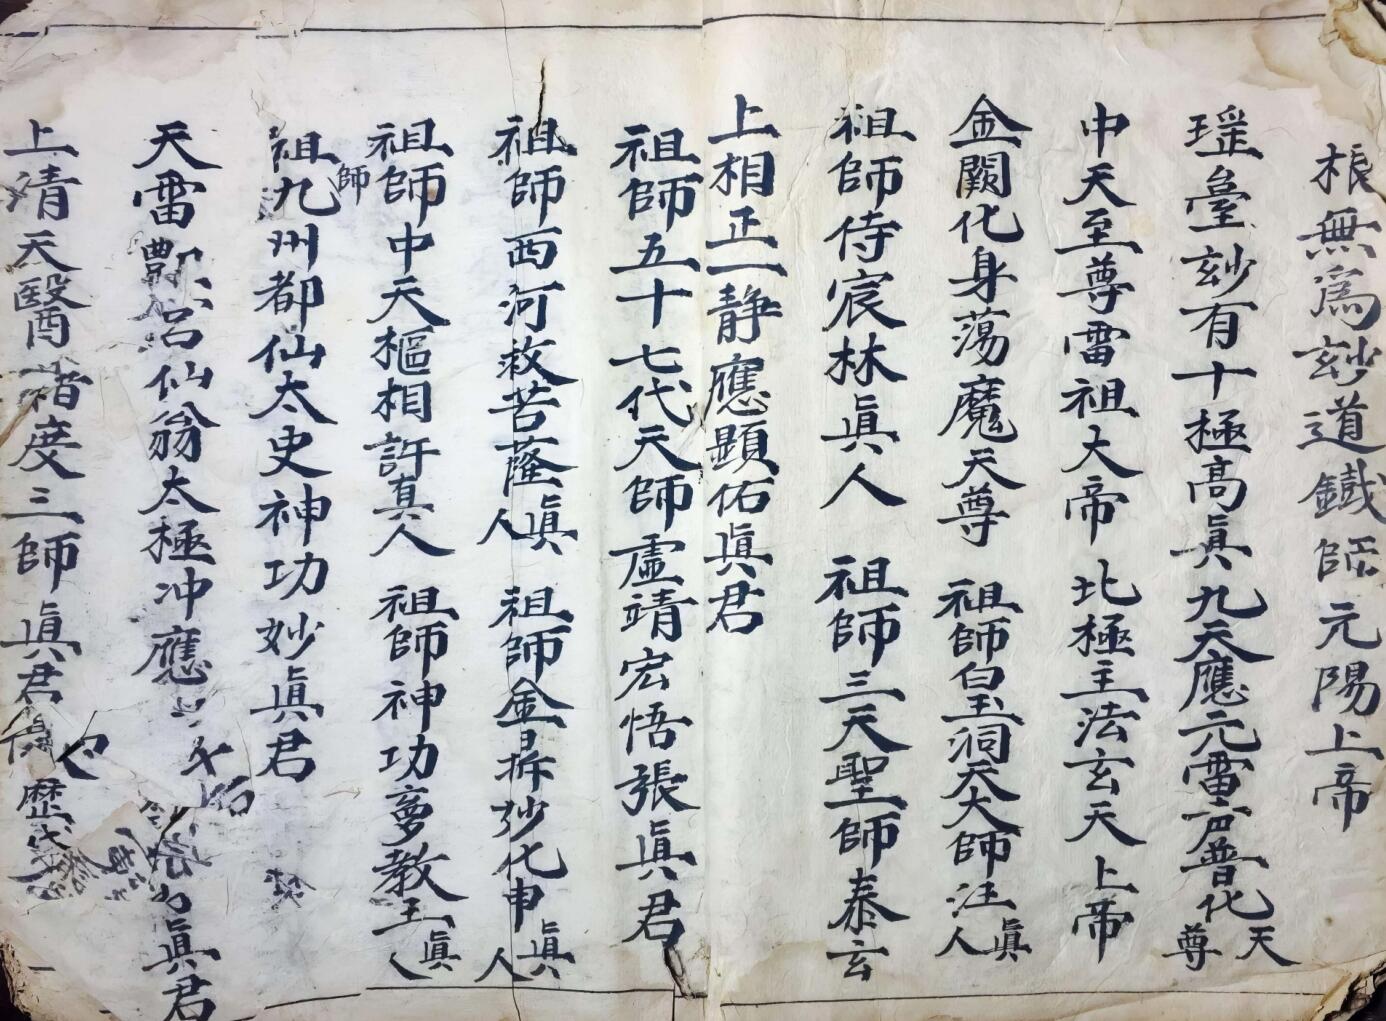 根無為玅道鐵師元陽上帝
瑶臺玅有十極高真九天應元雷声普化天尊
中天至尊雷祖大帝 北極主法玄天上帝
金闕化身蕩魔天尊 祖師白玉洞天大師汪真人
祖師侍宸林眞人 祖師三天聖師泰玄
上相正一靜應顯佑眞君
祖師五十七代天師虛靖宏悟張眞君
祖師西河救苦薩眞人 祖師金昇妙化申眞人
祖師中天樞相許真人 祖師神功夢教王眞人
祖師九州都仙太史神功妙眞君
天雷 仙翁太極冲應 眞君
上清天醫 度三師眞君 歷代